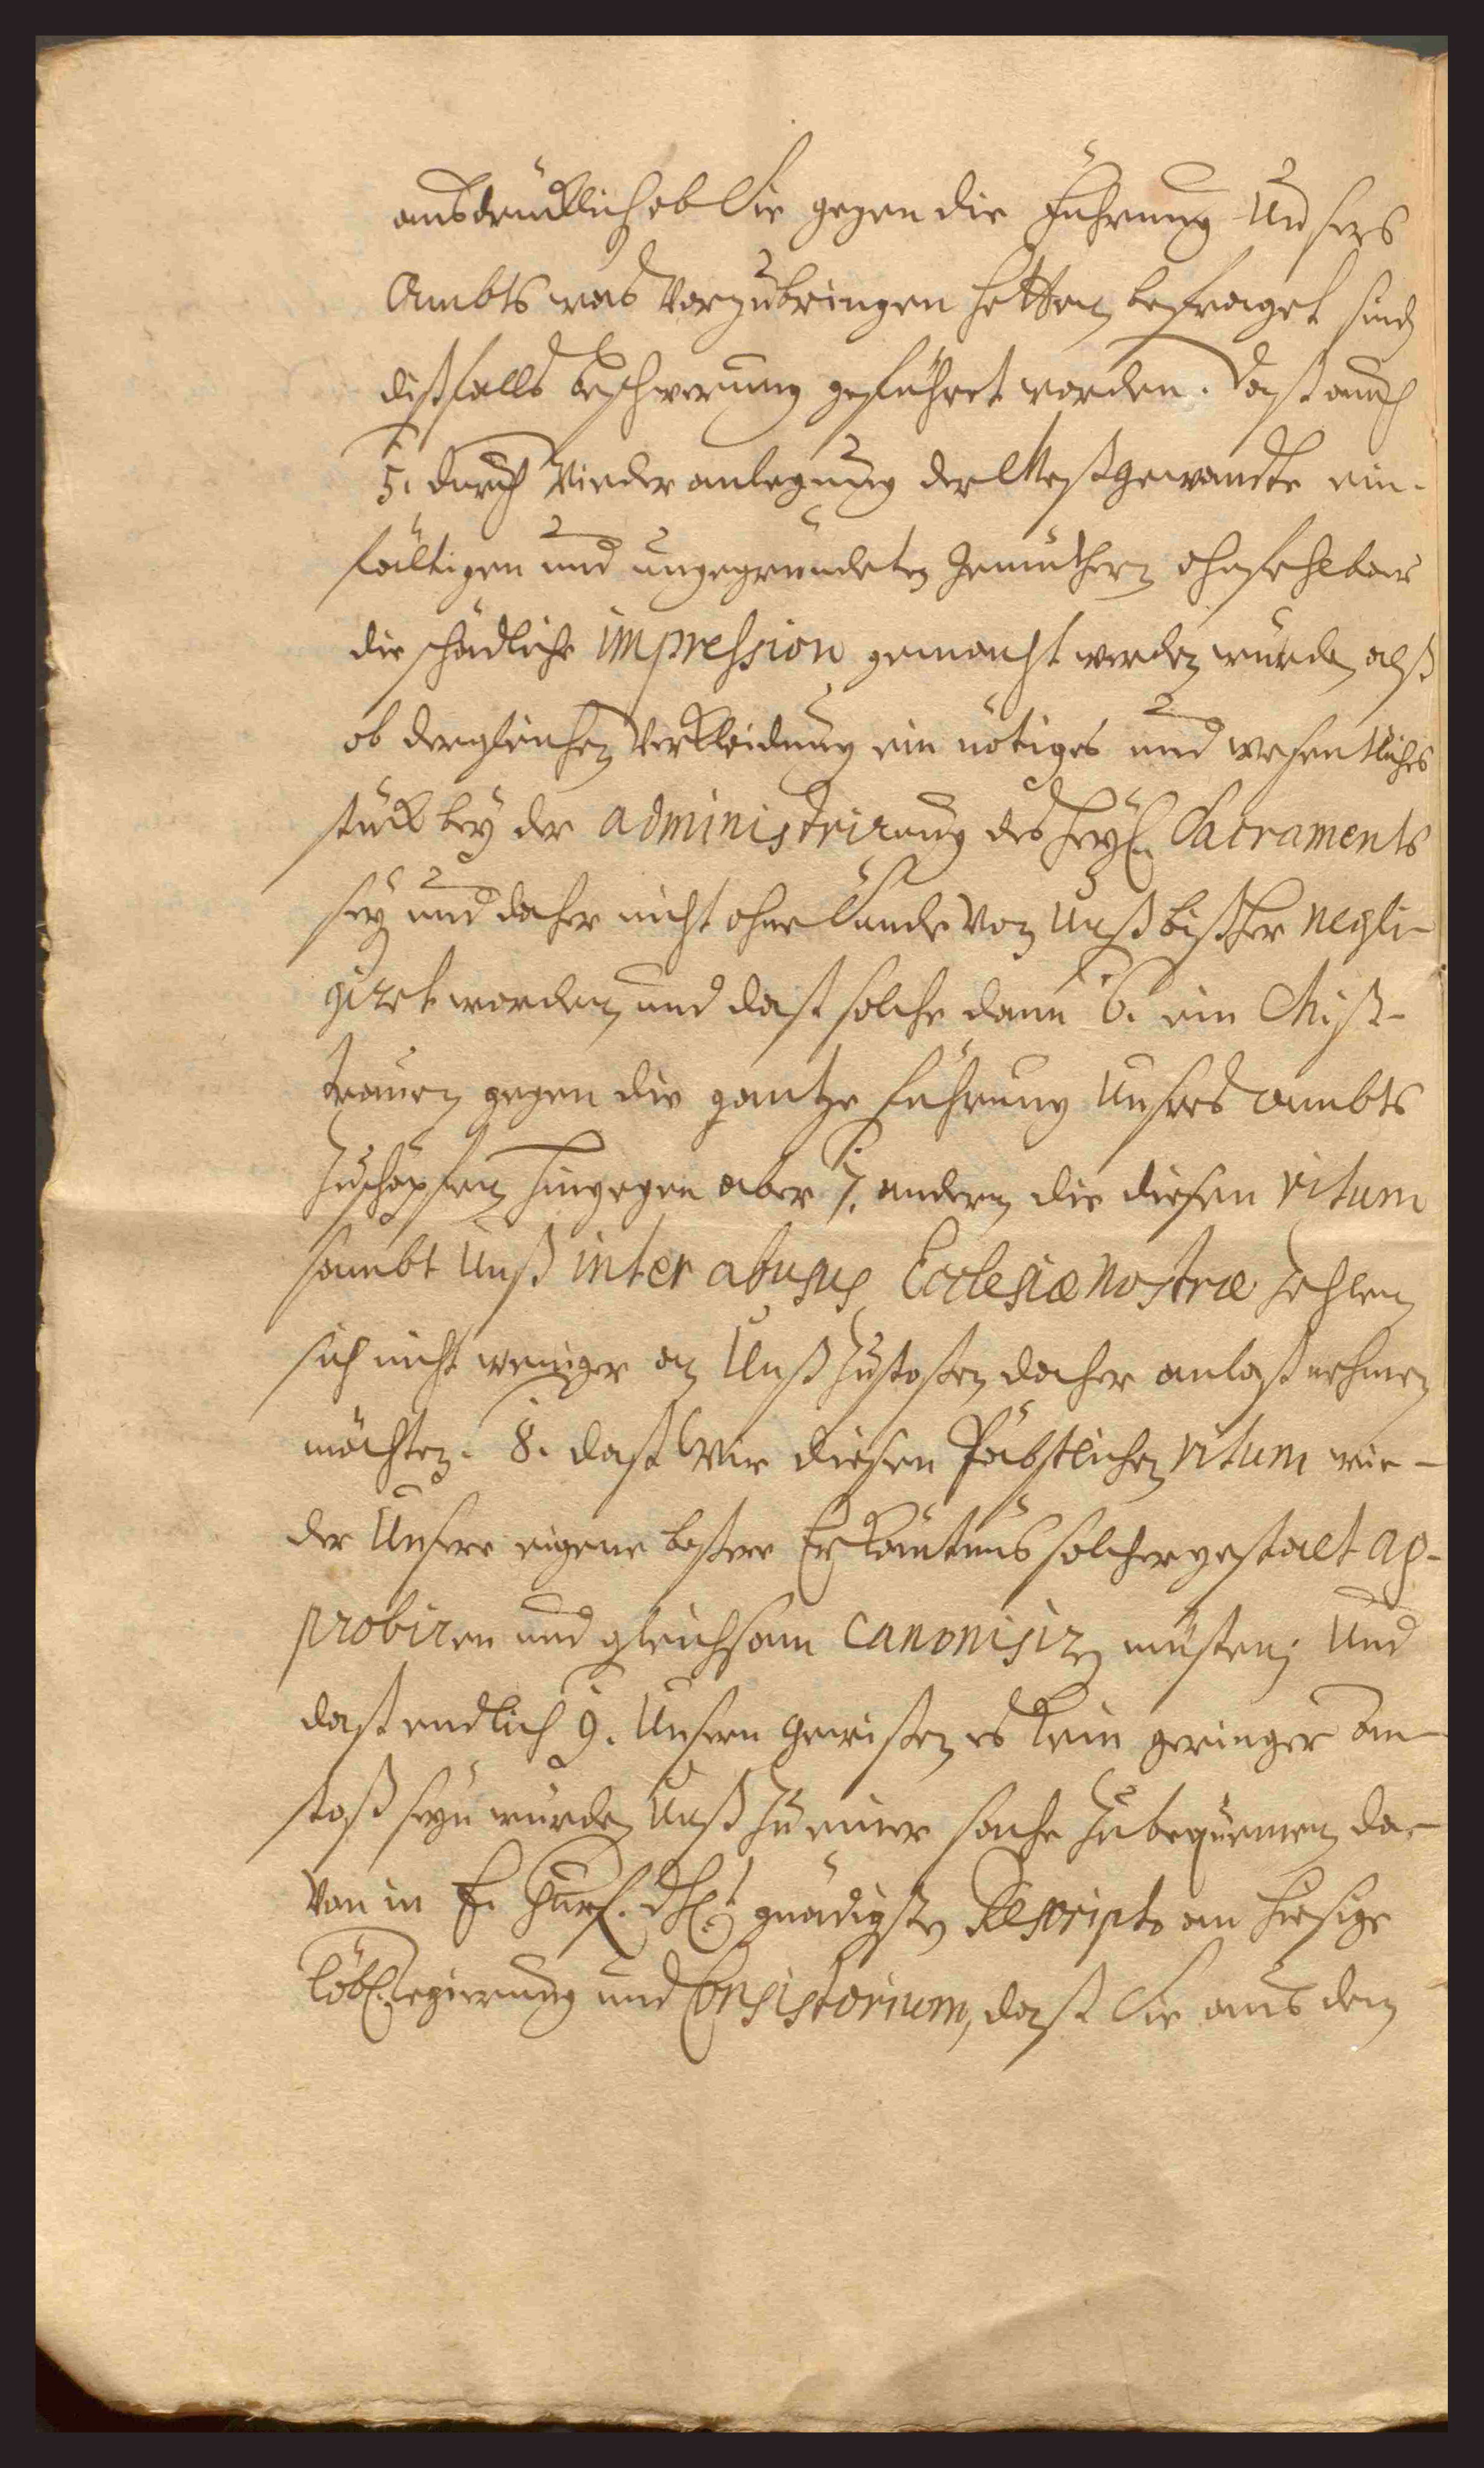 ausdrücklich ob Sie gegen die Führung Unsers
Ambts was Vorzubringen hetten, befraget sind
dißfalls beschwerung geführet worden. Daß auch
5. durch Wiederanlegung der Meßgewandte ein-
fältigen und ungegründeten gemüthern ohnfehlbar
die schädliche impression gemacht werden würde, alß
ob dergleichen Verkleidung ein nötiges und wesentliches
stück bey der administrirung des Heyl. Sacraments
sey und daher nicht ohne Sünde Von Unß bißher negli-
giret worden, und daß solche dann 6. ein Miß-
trauen gegen die gantze Führung Unsers Ambts
zuschöpffen, hingegen aber 7. andern, die diesen ritum
sambt Unß inter abusus Ecclesiæ nostræ zehlen,
sich nicht weniger an Unß zustoßen, daher anlaß nehmen
möchten. 8. daß Wir diesen Päbstlichen ritum wie-
der Unsere eigene beßere Erkäntnus solchergestalt ap-
probiren und gleichsam canonisiren müsten; Und
daß endlich 9. Unsern Gewißen es kein geringer an-
stoß seyn würde, Unß zu einer sache zubequemen, da-
Von in E. Churf. Dhl. gnädigsten Rescripto an hiesige
löbl. Regierung und Consistorium, daß Sie aus den